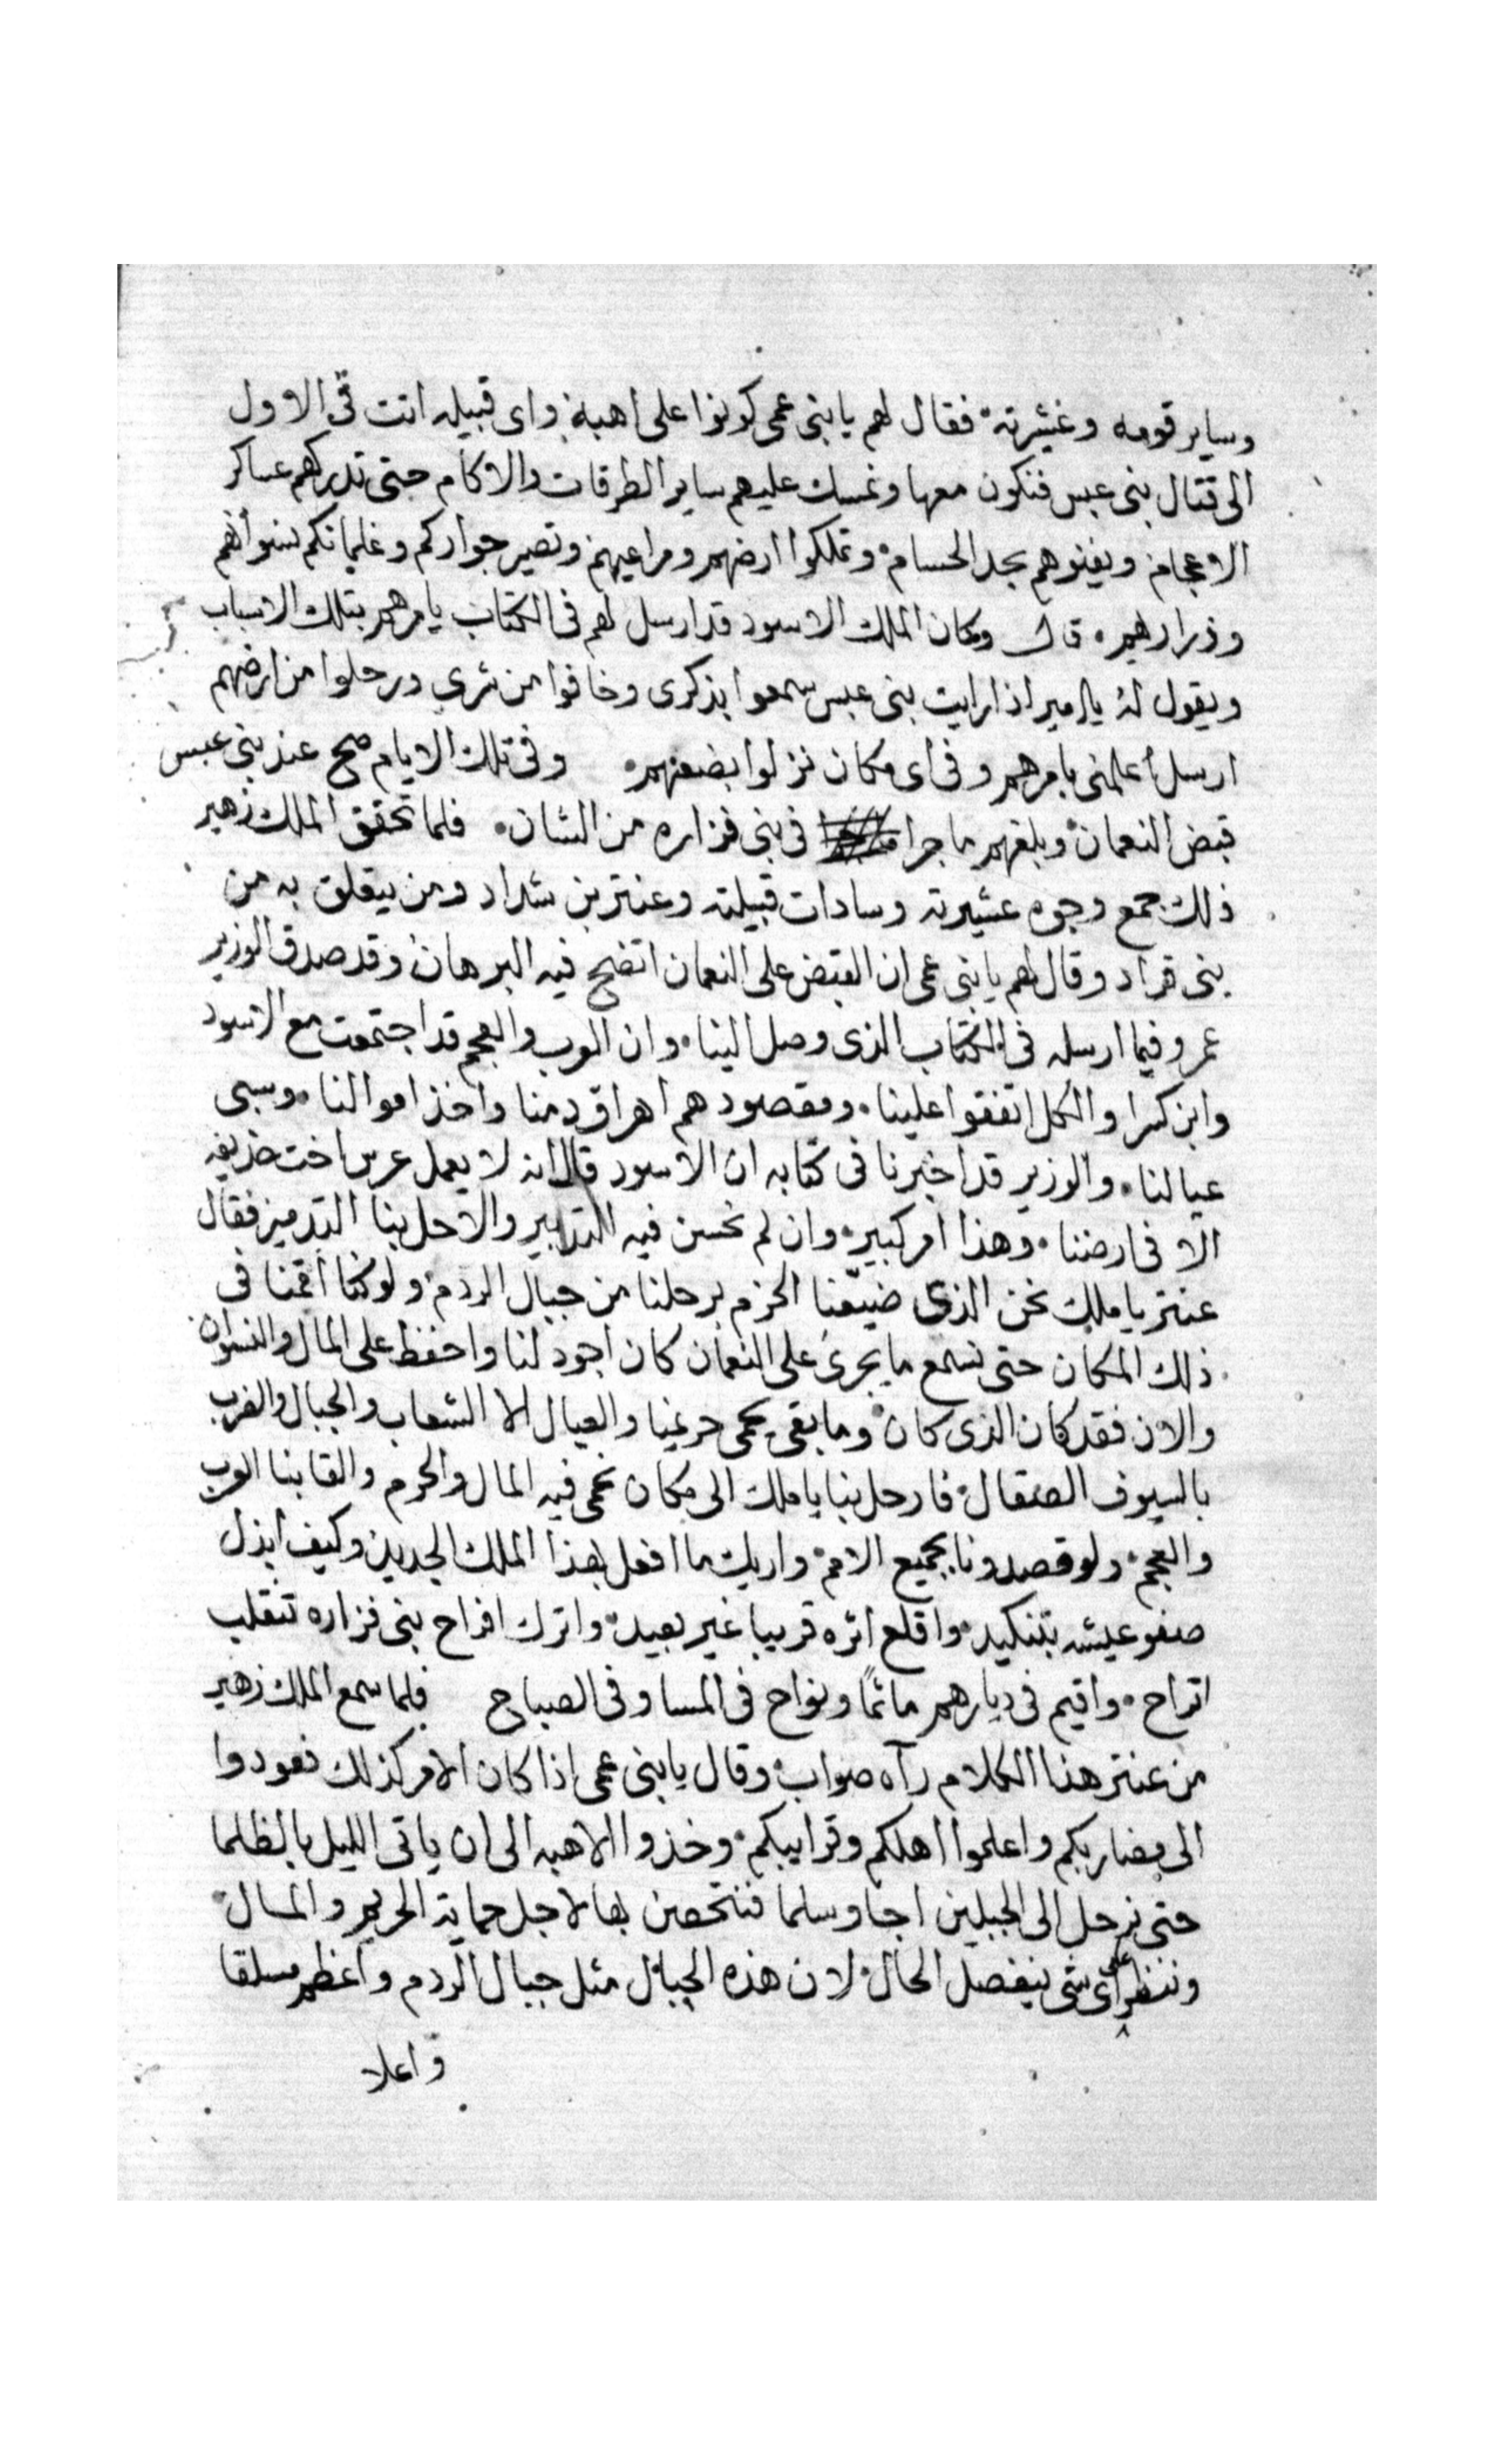 وساير قومه وعشيرته فقال لهم يا بنى عمى كونوا على اهبة واى قبيله اتت فى الاول
الى قتال بنى عبس فنكون معها ونمسك عليهم ساير الطرقات والاكام حتى تدركهم عساكر
الاعجام ويفنوهم بحد الحسام وتملكوا ارضهم ومراعيهم وتصير جواركم وغلمانكم نسوانهم
وذراريهم قال وكان الملك الاسود قد ارسل لهم فى الكتاب يامرهم بتلك الاسباب
ويقول له يا امير اذا رايت بنى عبس سمعوا بذكرى وخافوا من شرى ورحلوا من ارضهم
ارسل أعلمنى بامرهم وفى اى مكان نزلوا بضعنهم وفى تلك الايام صح عند بنى عبس
قبض النعمان وبلغهم ما جرا فى بنى فزاره من الشان فلما تحقق الملك زهير
ذلك جمع وجوه عشيرته وسادات قبيلته وعنتر بن شداد ومن يتعلق به من
بنى قراد وقال لهم يا بنى عمى ان القبض على النعمان اتضح فيه البرهان وقد صدق الوزير
عمرو فيما ارسله فى الكتاب الذى وصل الينا وان العرب والعجم قد اجتمعت مع الاسود
وابن كسرا والكل اتفقوا علينا ومقصودهم اهراق دمنا واخذ اموالنا وسبى
عيالنا والوزير قد اخبرنا فى كتابه ان الاسود قال انه لا يعمل عرس اخت حذيفه
الا فى ارضنا وهذا امر كبير وان لم نحسن فيه التدابير والا حل بنا التدمير فقال
عنتر يا ملك نحن الذى ضيّعنا الحزم برحلنا من جبال الردم ولو كنا أقمنا فى
ذلك المكان حتى نسمع ما يجرى على النعمان كان اجود لنا واحفظ على المال والنسوان
والان فقد كان الذى كان وما بقى يحمى حريمنا والعيال الا الشعاب والجبال والضرب
بالسيوف الصقال فارحل بنا يا ملك الى مكان نحمى فيه المال والحرم والقا بنا العرب
والعجم ولو قصدونا بجميع الامم واريك ما افعل بهذا الملك الجديد وكيف ابدل
صفو عيشه بتنكيد واقلع اثره قريبا غير بعيد واترك افراح بنى فزاره تنقلب
اتراح واقيم فى ديارهم ماتماً ونواح فى المسا وفى الصباح فلما سمع الملك زهير
من عنتر هذا الكلام رآه صواب وقال يا بنى عمى اذا كان الامر كذلك فعودوا
الى مضاربكم واعلموا اهلكم وقرايبكم وخذوا الاهبه الى ان ياتى الليل بالظلما
حتى نرحل الى الجبلين اجا وسلما فنتحصن بها لاجل حماية الحريم والمال
وننظر على أى شى ينفصل الحال لان هذه الجبال مثل جبال الردم وأعظم مسلقا
واعلا